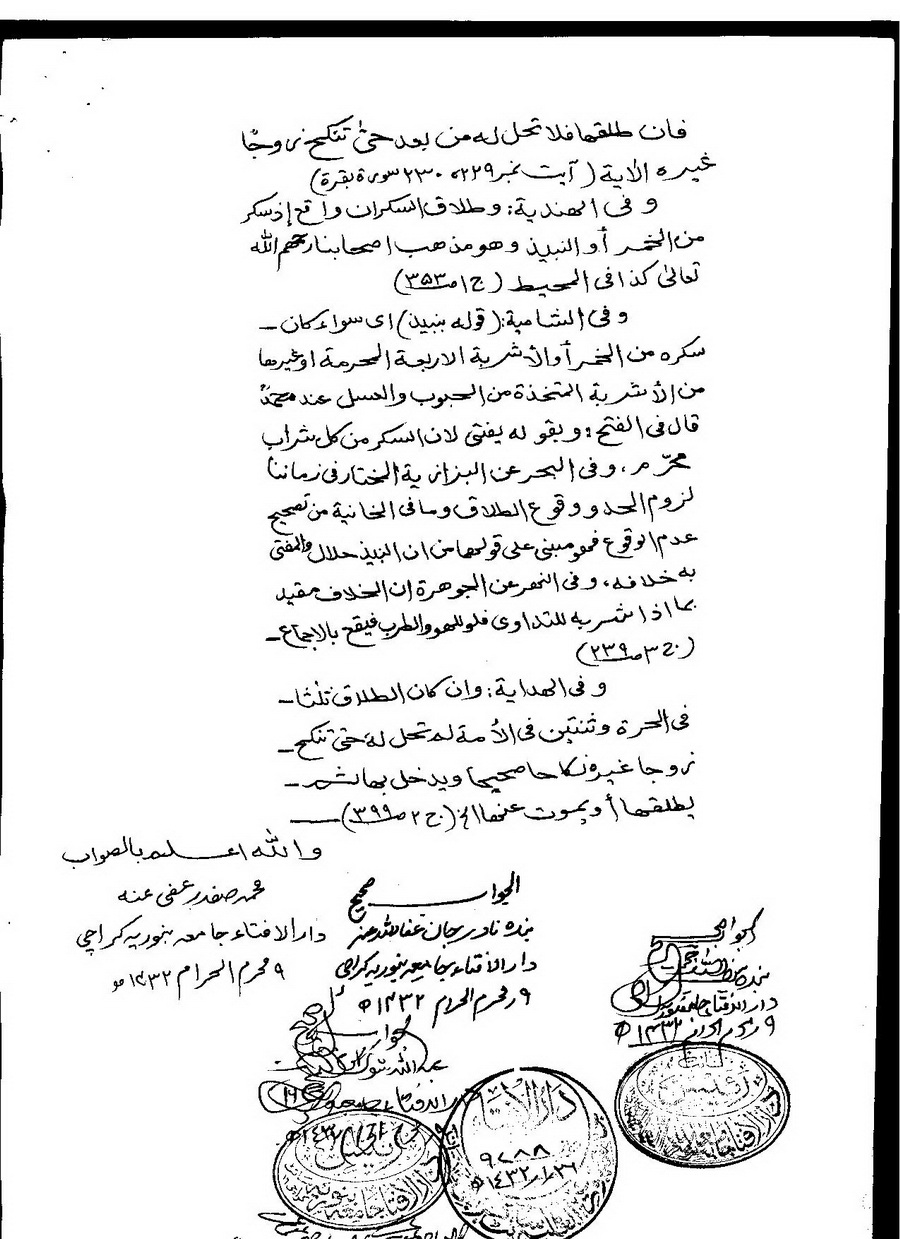 فان طلقها فلا تحل له من بعد حتیٰ تنکح زوجًا
غیرہ الاٰیة (آیت نمبر ۲۲۹، ۲۳۰ سورۃ بقرۃ)
و فی الهندیة: و طلاق السکران واقع إذ سکر
من الخمر أو النبیذ وهو مذهب اصحابنا رحمهم الله
تعالیٰ کذا فی المحیط (ج۱ صـ۳۵۳)
و فی الشامیة: (قوله بنبیذ) ای سواء کان ـ
سکره من الخمر أو الأشربة الاربعة المحرمة او غیرها
من الأشربة المتخذة من الحبوب والعسل عند محمدؒ
قال فی الفتح: وبقوله یفتی لان السکر من کل شراب
محرّم، وفی البحر عن البزازیة المختار فی زماننا
لزوم الحد و وقوع الطلاق وما فی الخانیة من تصحیح
عدم الوقوع فهو مبنی علی قولهما من ان النبیذ حلال والمفتی
به خلافه، وفی النهر عن الجوهرة إن الخلاف مقید
بما اذا شربه للتداوی فلو للهو والطرب فیقع بالاجماع ـ
(ج۳ صـ۲۳۹)
و فی الهدایة: وان کان الطلاق ثلٰثا ـ
فی الحرة وثنتین فی الأمة لم تحل له حتیٰ تنکح ـ
زوجا غیره نکاحا صحیحا ویدخل بها ثم ـ
یطلقها أو یموت عنها الخ (ج۲ صـ۳۹۹) ـ
والله اعلم بالصواب
محمد صفدر عفی عنه
دارالافتاء جامعه بنوریه کراچی
۹ محرم الحرام ۱۴۳۲ھ
الجواب صحیح
بنده نادر جان عفا اللہ عنہ
دارالافتاء جامعه بنوریه کراچی
۹ محرم الحرام ۱۴۳۲ھ
الجواب صحیح
بنده
دارالافتاء جامعه بنوریه
۹ محرم الحرام ۱۴۳۲ھ
الجواب صحیح
عبد الله شوکت
دارالافتاء جامعه بنوریه
دارالافتاء
۹۷۸۸
رئیس
دارالافتاء جامعه بنوریه